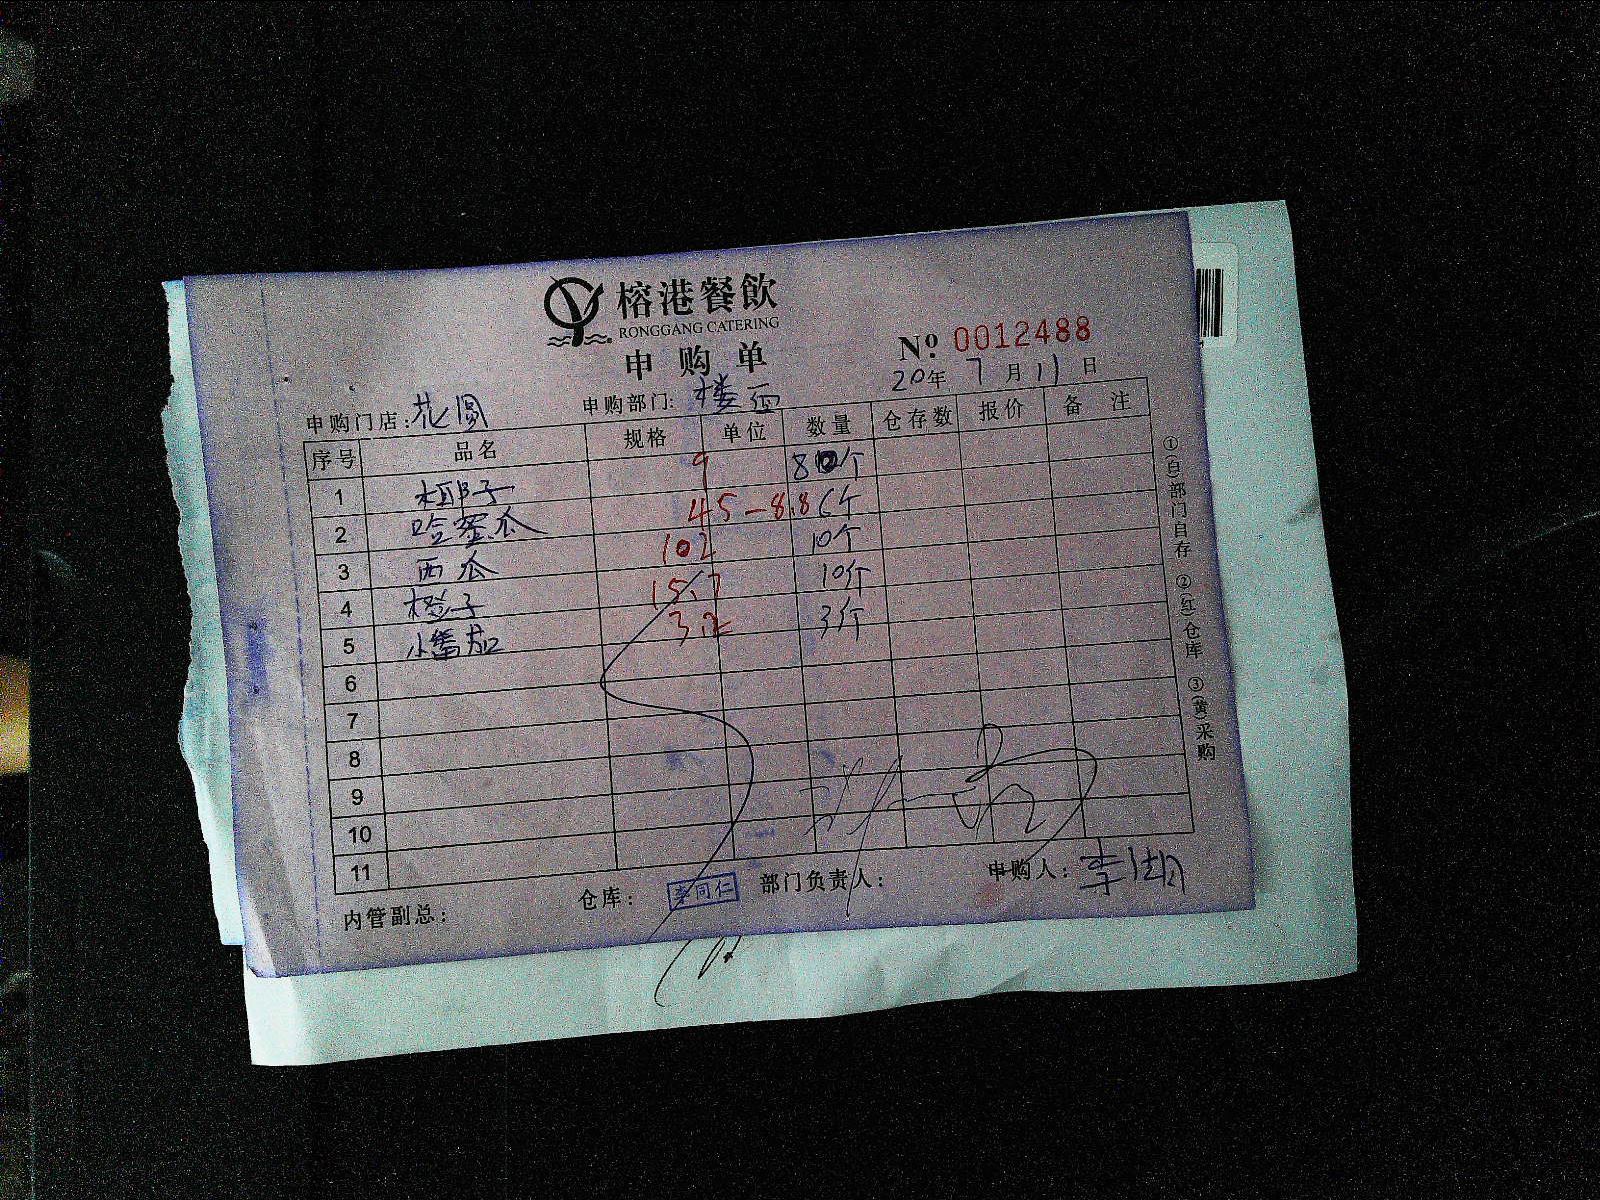 榕港餐飲
RONGGANG CATERING
申购单
No 0012488
20年 7月11日
申购门店：花園 申购部门：楼面
序号 品名 规格 单位 数量 仓存数 报价 备 注
1 椰子 9 8个
2 哈蜜瓜 45-8.8 6个
3 西瓜 102 10个
4 橙子 15.7 10个
5 小番茄 3.2 3个
6
7
8
9
10
11
内管副总： 仓库： 李同仁 部门负责人： 申购人：李
①(白)部门自存 ②(红)仓库 ③(黄)采购